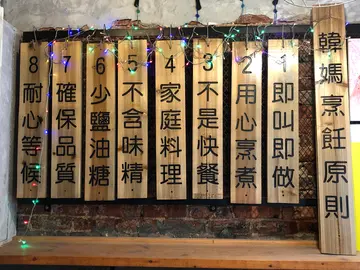 韓媽烹飪原則
1即叫即做
2用心烹煮
3不是快餐
4家庭料理
5不含味精
6少鹽油糖
7確保品質
8耐心等候